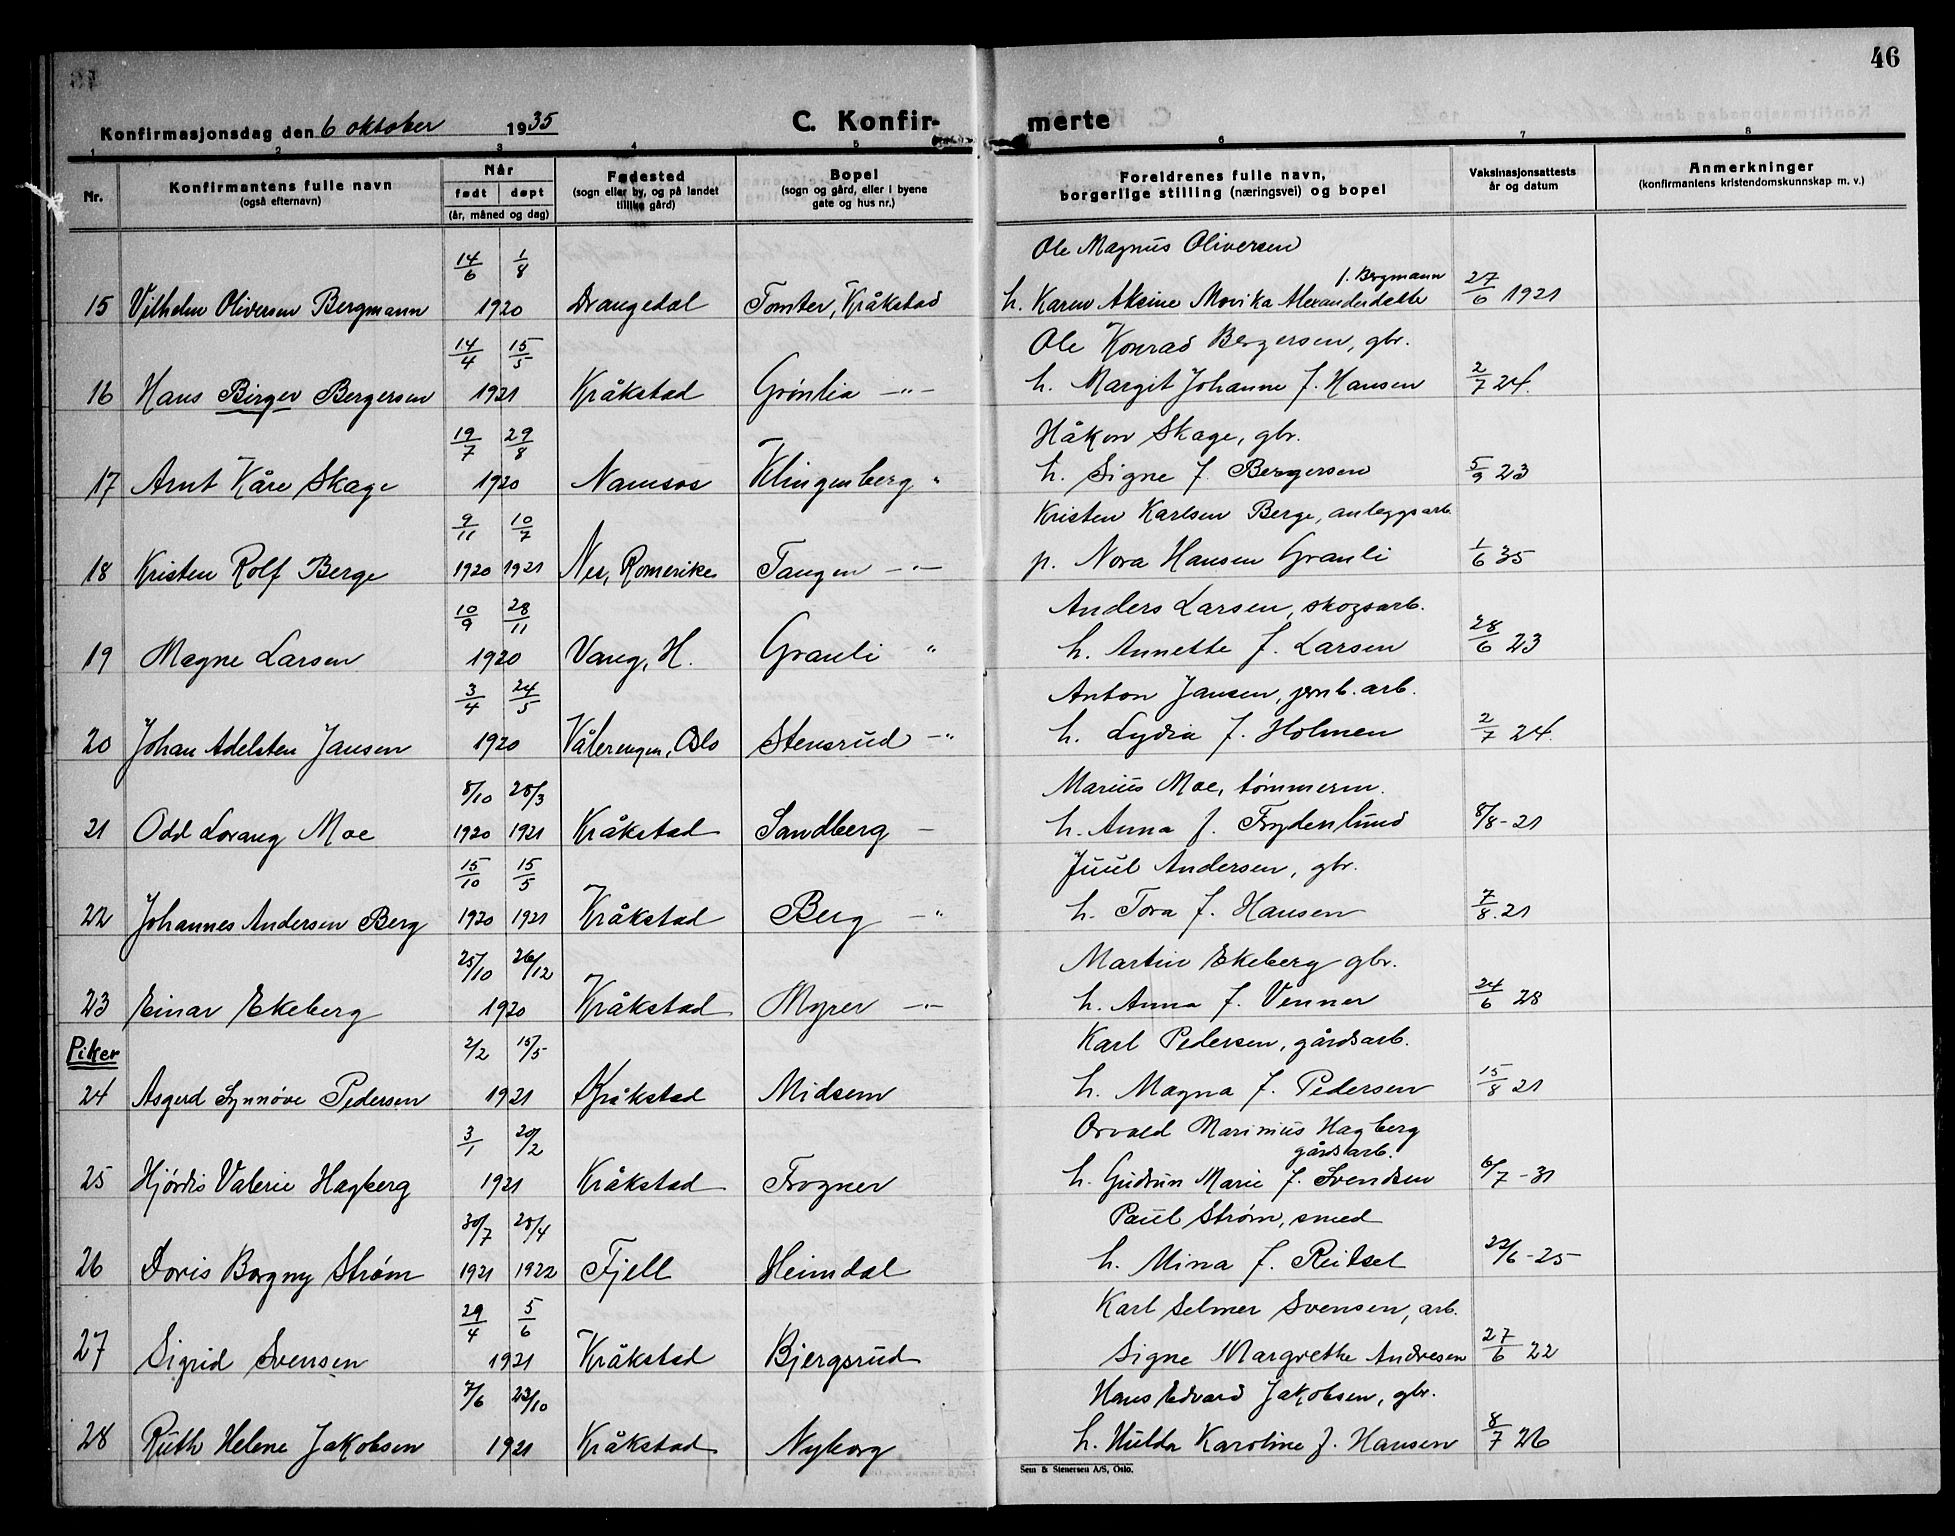 46
Konfirmasjonsdag den 6 oktober 1935 C. Konfir- merte
1 2 3 4 5 6 7 8
Nr. Konfirmantens fulle navn (også efternavn) Når født døpt (år, måned og dag) Fødested (sogn eller by, og på landet tillike gård) Bopel (sogn og gård, eller i byene gate og hus nr.) Foreldrenes fulle navn, borgerlige stilling (næringsvei) og bopel Vaksinasjonsattests år og datum Anmerkninger (konfirmantens kristendomskunnskap m. v.)
14/6 1/8 Ole Magnus Oliversen
15 Vilhelm Oliversen Bergmann 1920 Drangedal Tomter, Kråkstad h. Karen Aksine Movika Alexanderdatte f. Bergmann 27/6 1921
14/4 15/5 Ole Konrad Bergersen, gbr.
16 Hans Birger Bergersen 1921 Kråkstad Grønlia -"- h. Margit Johanne f. Hansen 2/7 24.
19/7 29/8 Håkon Skage, gbr.
17 Arnt Kåre Skage 1920 Namsos Klingenberg " h. Signe f. Bergersen 5/9 23
9/11 10/7 Kristen Karlsen Berge, anleggsarb.
18 Kristen Rolf Berge 1920 1921 Nes, Romerike Tangen -"- p. Nora Hansen Granli 1/6 35
10/9 28/11 Anders Larsen, skogsarb.
19 Magne Larsen 1920 Vang, H. Granli " h. Annette f. Larsen 28/6 23
3/4 24/5 Anton Jansen, jernb. arb.
20 Johan Adelsten Jansen 1920 Vålerengen, Oslo Stensrud -"- h. Lydia f. Holmen 2/7 24.
8/10 28/3 Marius Moe, tømmerm.
21 Odd Lorang Moe 1920 1921 Kråkstad Sandberg - h. Anna f. Frydenlund 8/8 - 21
15/10 15/5 Juul Andersen, gbr.
22 Johannes Andersen Berg 1920 1921 Kråkstad Berg -"- h. Tora f. Hansen 7/8. 21
25/10 26/12 Martin Ekeberg gbr.
23 Einar Ekeberg 1920 Kråkstad Myrer -"- h. Anna f. Venner 24/6 28
Piker 2/2 15/5 Karl Pedersen, gårdsarb.
24 Asgerd Synnøve Pedersen 1921 Kråkstad Midsem h. Magna f. Pedersen 15/8 21
3/1 20/2 Osvald Marinius Hagberg gårdsarb.
25 Hjørdis Valerie Hagberg 1921 Kråkstad Frogner h. Gudrun Marie f. Svendsen 6/7 - 31
30/7 28/4 Paul Strøm, smed
26 Doris Borgny Strøm 1921 1922 Fjell Heimdal h. Mina f. Reitsel 22/6 - 25
29/4 5/6 Karl Selmer Svensen, arb.
27 Sigrid Svensen 1921 Kråkstad Bjergsrud Signe Margrethe Andresen 27/6 22
7/6 23/10 Hans Edvard Jakobsen, gbr.
28 Ruth Helene Jakobsen 1921 Kråkstad Nyborg h. Hulda Karoline f. Hansen 8/7 26
Sem & Stenersen A/S, Oslo.